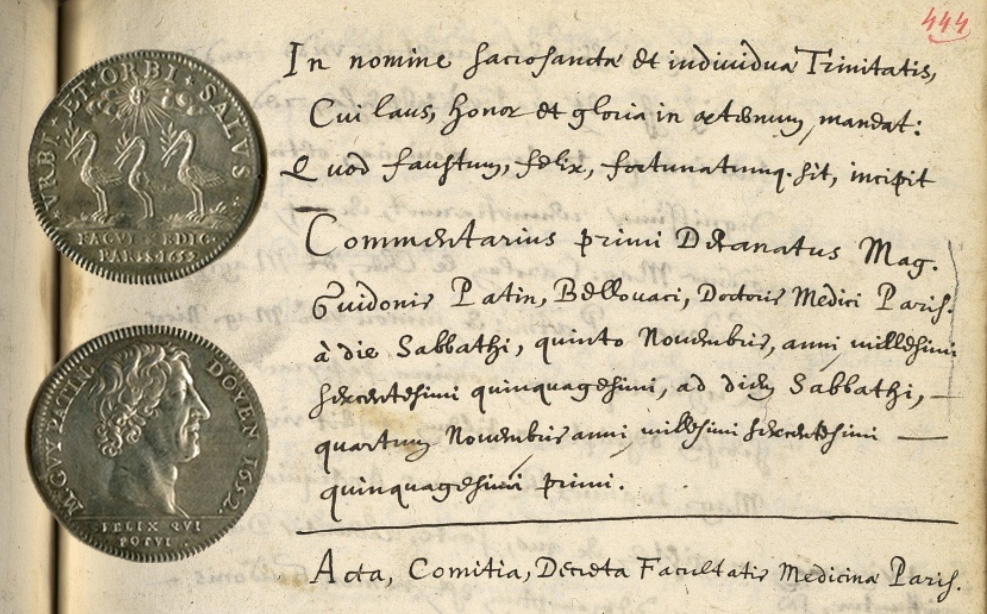 444
VRBI · ET · ORBI · SALVS
FACVL · MEDIC
PARIS · 1652
M · GVY PATIN DOYEN 1652.
FELIX QVI
POTVI
In nomine sacrosanctæ et individuæ Trinitatis,
Cui laus, honor et gloria in æternum mandat:
Quod faustum, felix, fortunatumq. sit, incipit
Commentarius primi Decanatus Mag.
Guidonis Patin, Bellovaci, Doctoris Medici Paris.
à die Sabbathi, quinto Novembris, anni millesimi
sexcentesimi quinquagesimi, ad diem Sabbathi, —
quartum Novembris anni millesimi sexcentesimi —
quinquagesimi primi.
Acta, Comitia, Decreta Facultatis Medicinæ Paris.